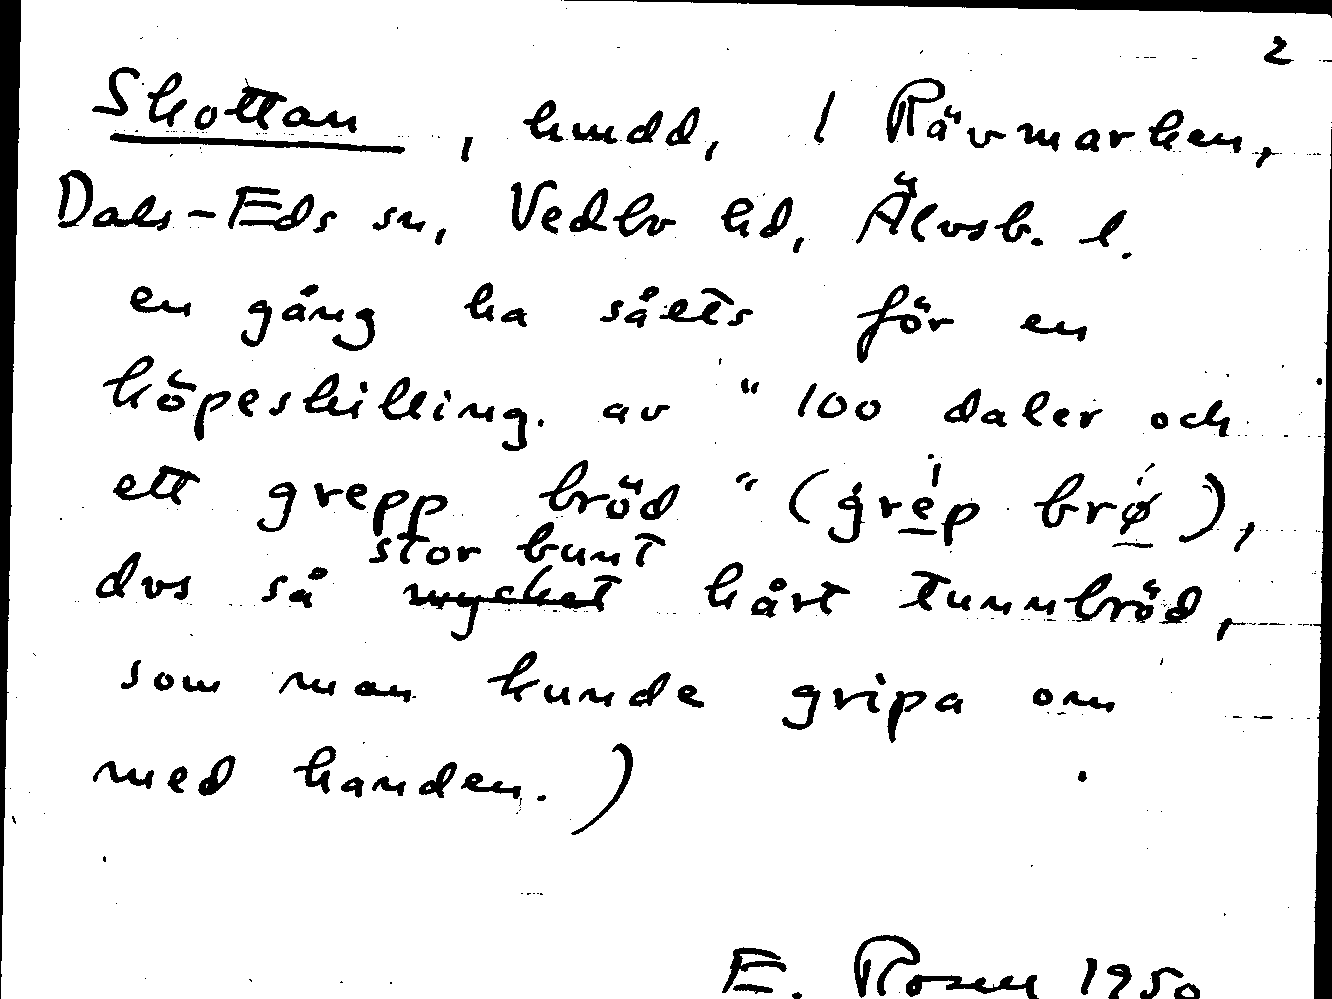 2
Skottan, hmdd, / Rävmarken,
Dals-Eds sn, Vedbo hd, Älvsb. l.
en gång ha sålts för en
köpeskilling. av "100 daler och
ett grepp bröd" (grép brø),
stor bunt
dvs så mycket hårt tunnbröd,
som man kunde gripa om
med handen.)
E. Rosen 1950